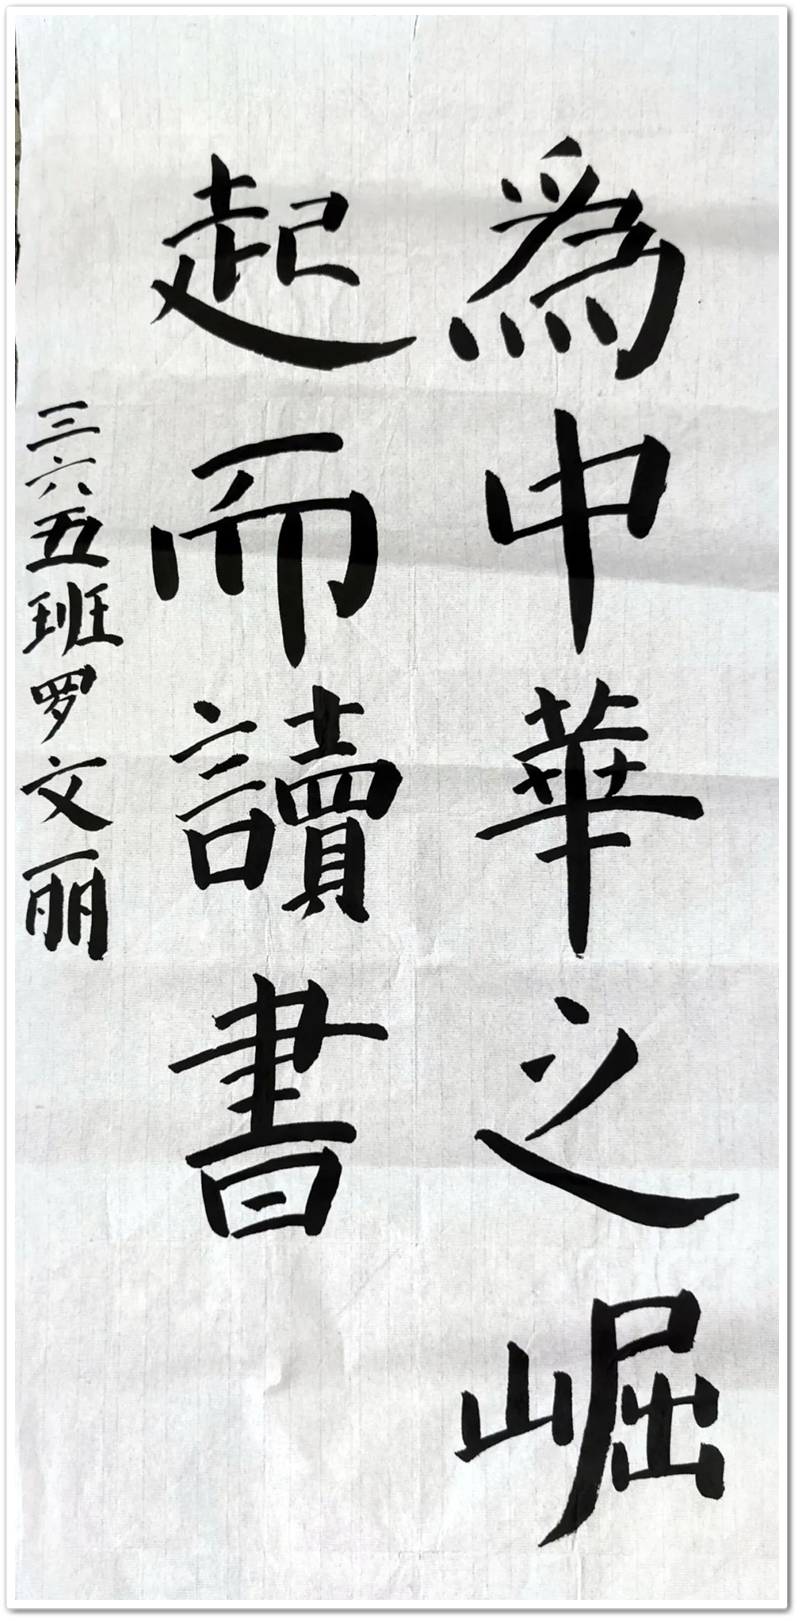 爲中華之崛
起而讀書
三六五班罗文丽